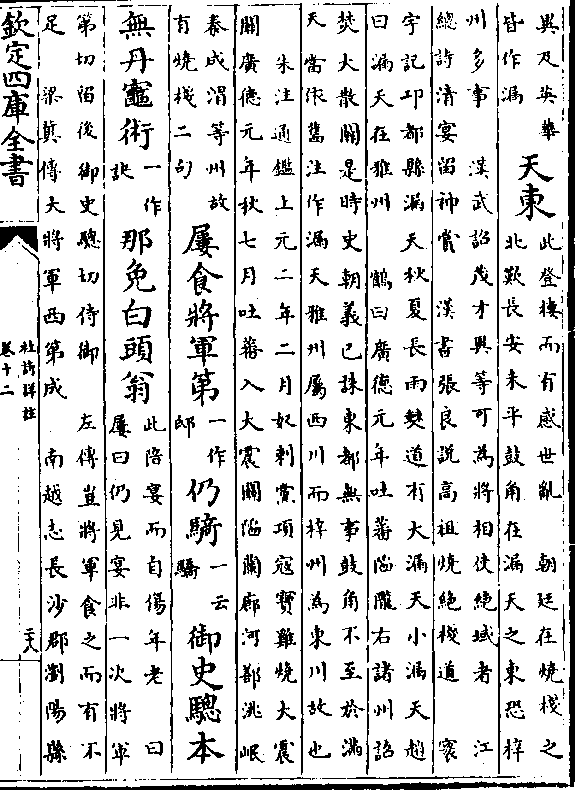 異及英華
皆作漏
天東
此登樓而有感世亂　朝廷在燒棧之
北歎長安未平鼓角在漏天之東恐梓
州多事　漢武詔茂才異等可為將相使絶域者　江
總詩清宴留神賞　漢書張良説高祖燒絶棧道　寰
宇記卭都縣漏天秋夏長雨僰道有大漏天小漏天趙
曰漏天在雅州　鶴曰廣德元年吐蕃陷隴右諸州詔
焚大散關是時史朝義已誅東都無事鼓角不至於滿
天當依舊注作漏天雅州屬西川而梓州為東川故也
朱注通鑑上元二年二月奴刺党項寇寶雞燒大震
關廣德元年秋七月吐蕃入大震關陷蘭廊河鄯洮岷
秦成渭等州故
有燒棧二句
屢食將軍第
一作
邸
仍騎
一云
驕
御史驄本
無丹竈術
一作
訣
那免白頭翁
此陪宴而自傷年老　曰
屢曰仍見宴非一次將軍
第切留後御史驄切侍御　左傳豈將軍食之而有不
足　梁冀傳大將軍西第成　南越志長沙郡瀏陽縣
欽定四庫全書
杜詩詳註
卷十二